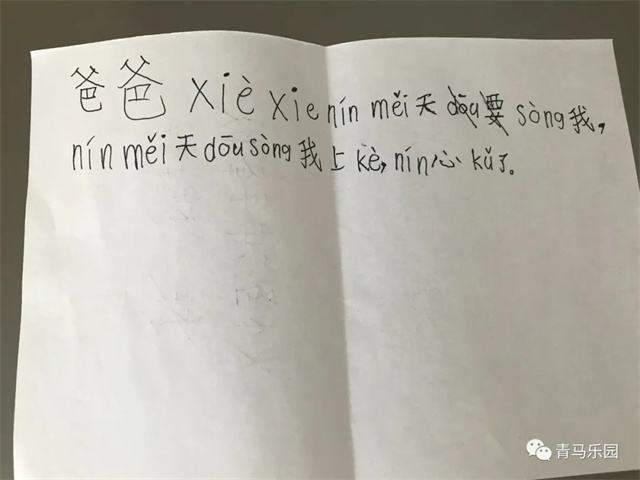 爸爸 xiè xie nín měi天 dōu要 sòng我,
nín měi天dōu sòng我上kè, nín心kǔ了。
青马乐园